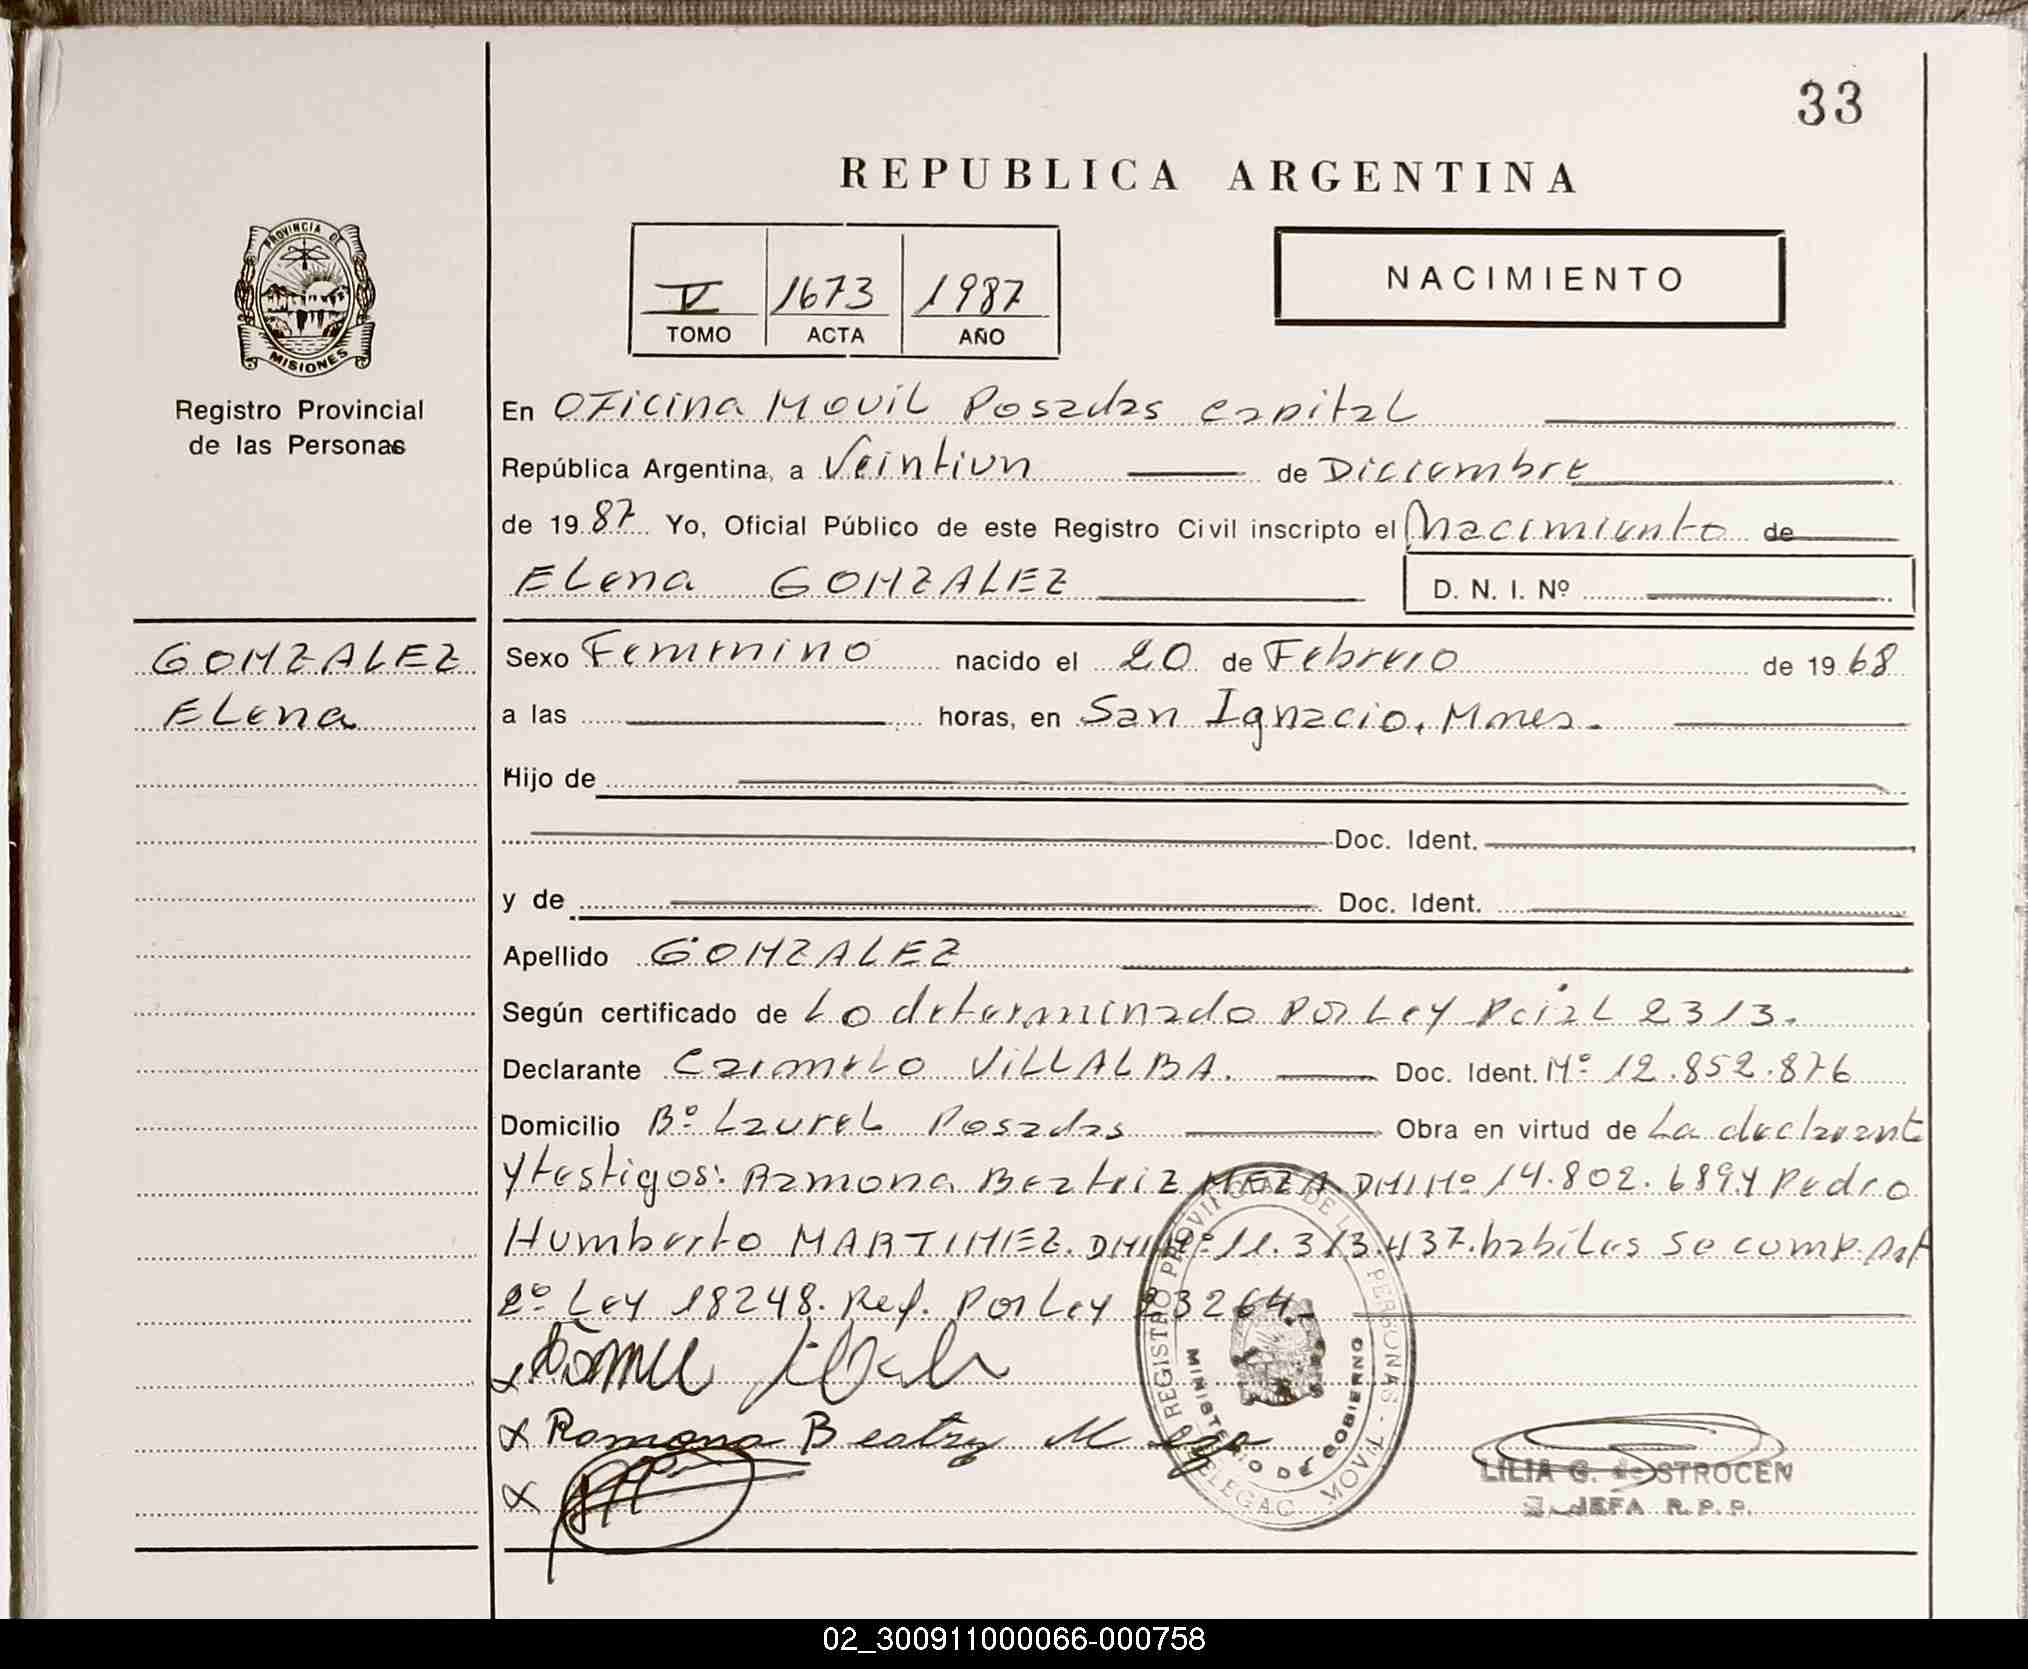 33
REPUBLICA ARGENTINA
PROVINCIA DE
MISIONES
V 1673 1987
TOMO ACTA AÑO
NACIMIENTO
Registro Provincial
de las Personas
En Oficina Movil Posadas capital
República Argentina, a Veintiun de Diciembre
de 19 87 Yo, Oficial Público de este Registro Civil inscripto el Nacimiento de
Elena GONZALEZ D. N. I. Nº
GONZALEZ
Elena
Sexo Femenino nacido el 20 de Febrero de 19 68
a las horas, en San Ignacio, Mnes.
Hijo de
Doc. Ident.
y de Doc. Ident.
Apellido GONZALEZ
Según certificado de Lo determinado Por Ley Pcial 2313.
Declarante Carmelo VILLALBA. Doc. Ident. Nº 12.852.876
Domicilio Bº Laurel Posadas Obra en virtud de La declarante
y testigos: Ramona Beatriz MEZA DNI Nº 14.802.689 y Pedro
Humberto MARTINEZ. DNI Nº 11.313.437. habiles se comp. Art
2º Ley 18248. Ref. Por Ley 23264.
x
x Ramona Beatriz Meza
x
REGISTRO PROVINCIAL DE LAS PERSONAS
MINISTERIO DE GOBIERNO
LILIA G. de STROCEN
JEFA R.P.P.
02_300911000066-000758